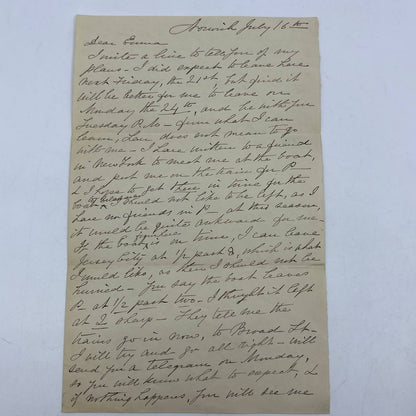 Norwich July 16th
Dear Emma
I write a line to tell you of my
plans - I did expect to leave here
next Friday, the 21st, but find it
will be better for me to leave on
Monday the 24th, and be with you
Tuesday P.M. - from what I can
learn, Lou does not mean to go
with me - I have written to a friend
in New York to meet me at the boat,
and put me on the train for P -
& I hope to get there in time for the
boat, I should not like to be left, as I
have no friends in P - at this season,
it would be quite awkward for me -
If the boat is in time, I can leave
Jersey City at 1/2 past 8, which is what
I would like, as then I should not be
hurried - You say the boat leaves
P - at 1/2 past two - I thought it left
at 2 sharp - They tell me the
trains go in now, to Broad St -
I will try and go all right - will
send you a telegram on Monday,
so you will know what to expect, &
if nothing happens, you will see me